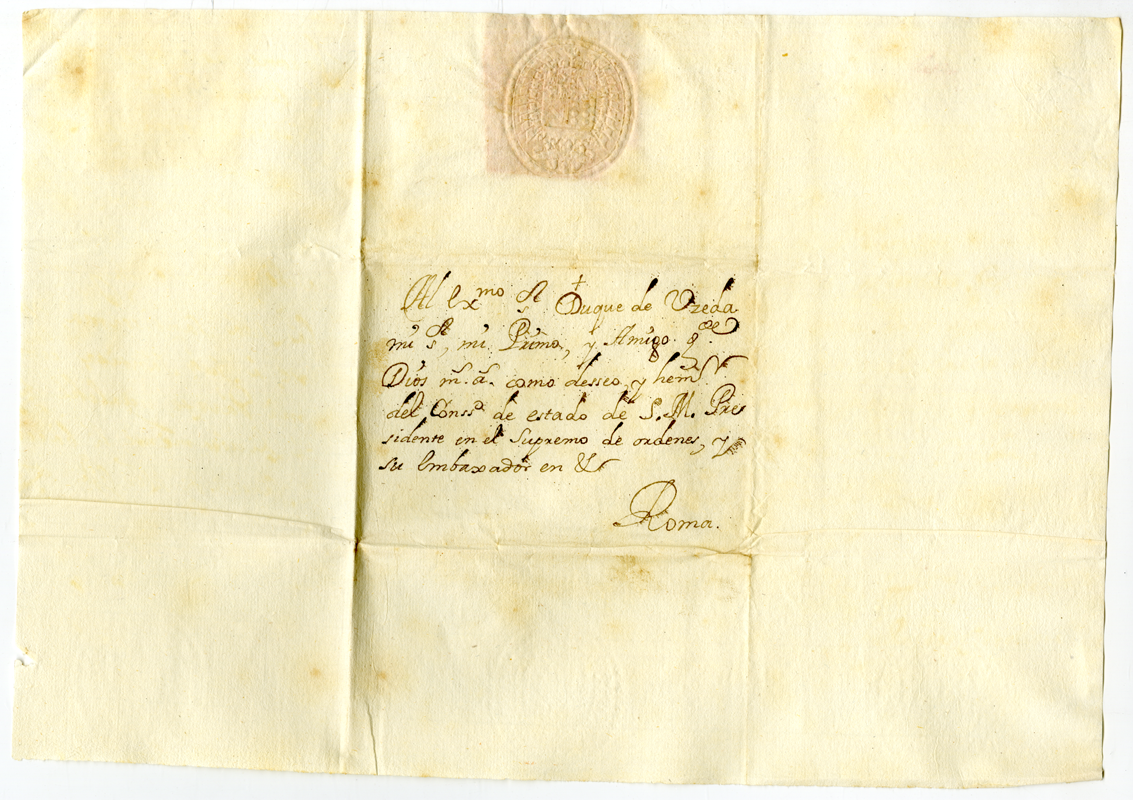 †
Al Exmo Sr Duque de Uzeda
mi Sr, mi Primo, y Amigo, q
Dios ms. as. como desseo, y
del Conss.o de estado de S. M. Pre
sidente en el Supremo de ordenes, y
su Embaxador en &
Roma.